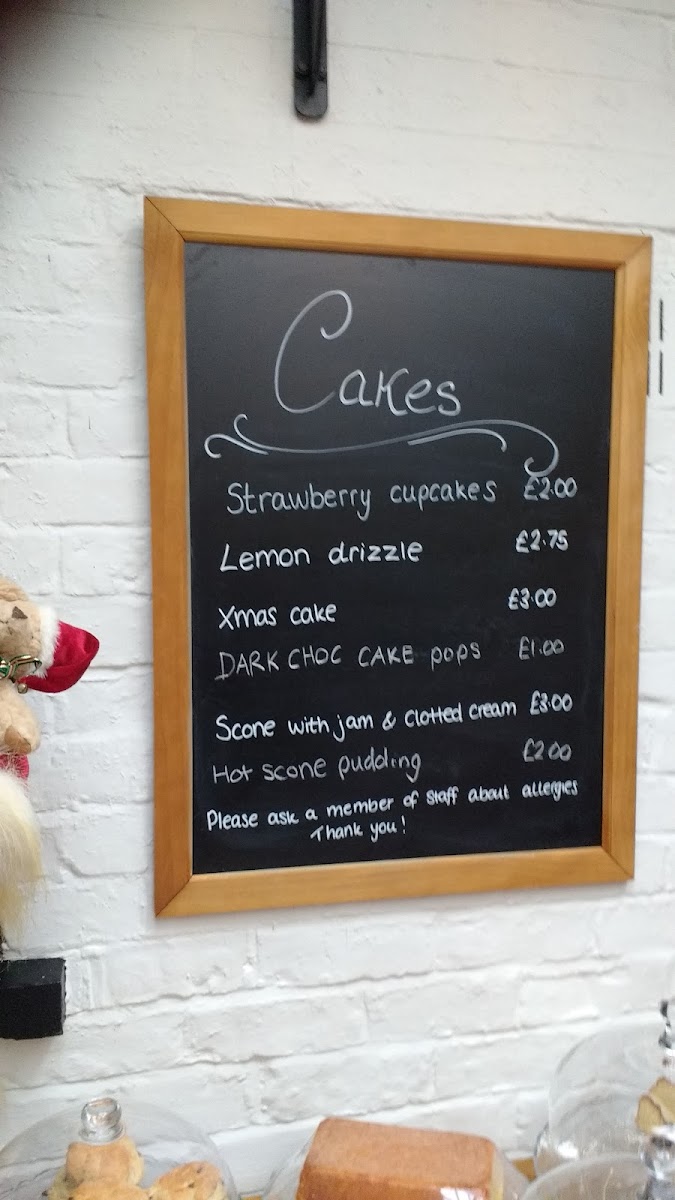 Cakes
Strawberry cupcakes £2.00
Lemon drizzle £2.75
Xmas cake £3.00
DARK CHOC CAKE pops £1.00
Scone with jam & clotted cream £3.00
Hot scone pudding £2.00
Please ask a member of staff about allergies
Thank you!